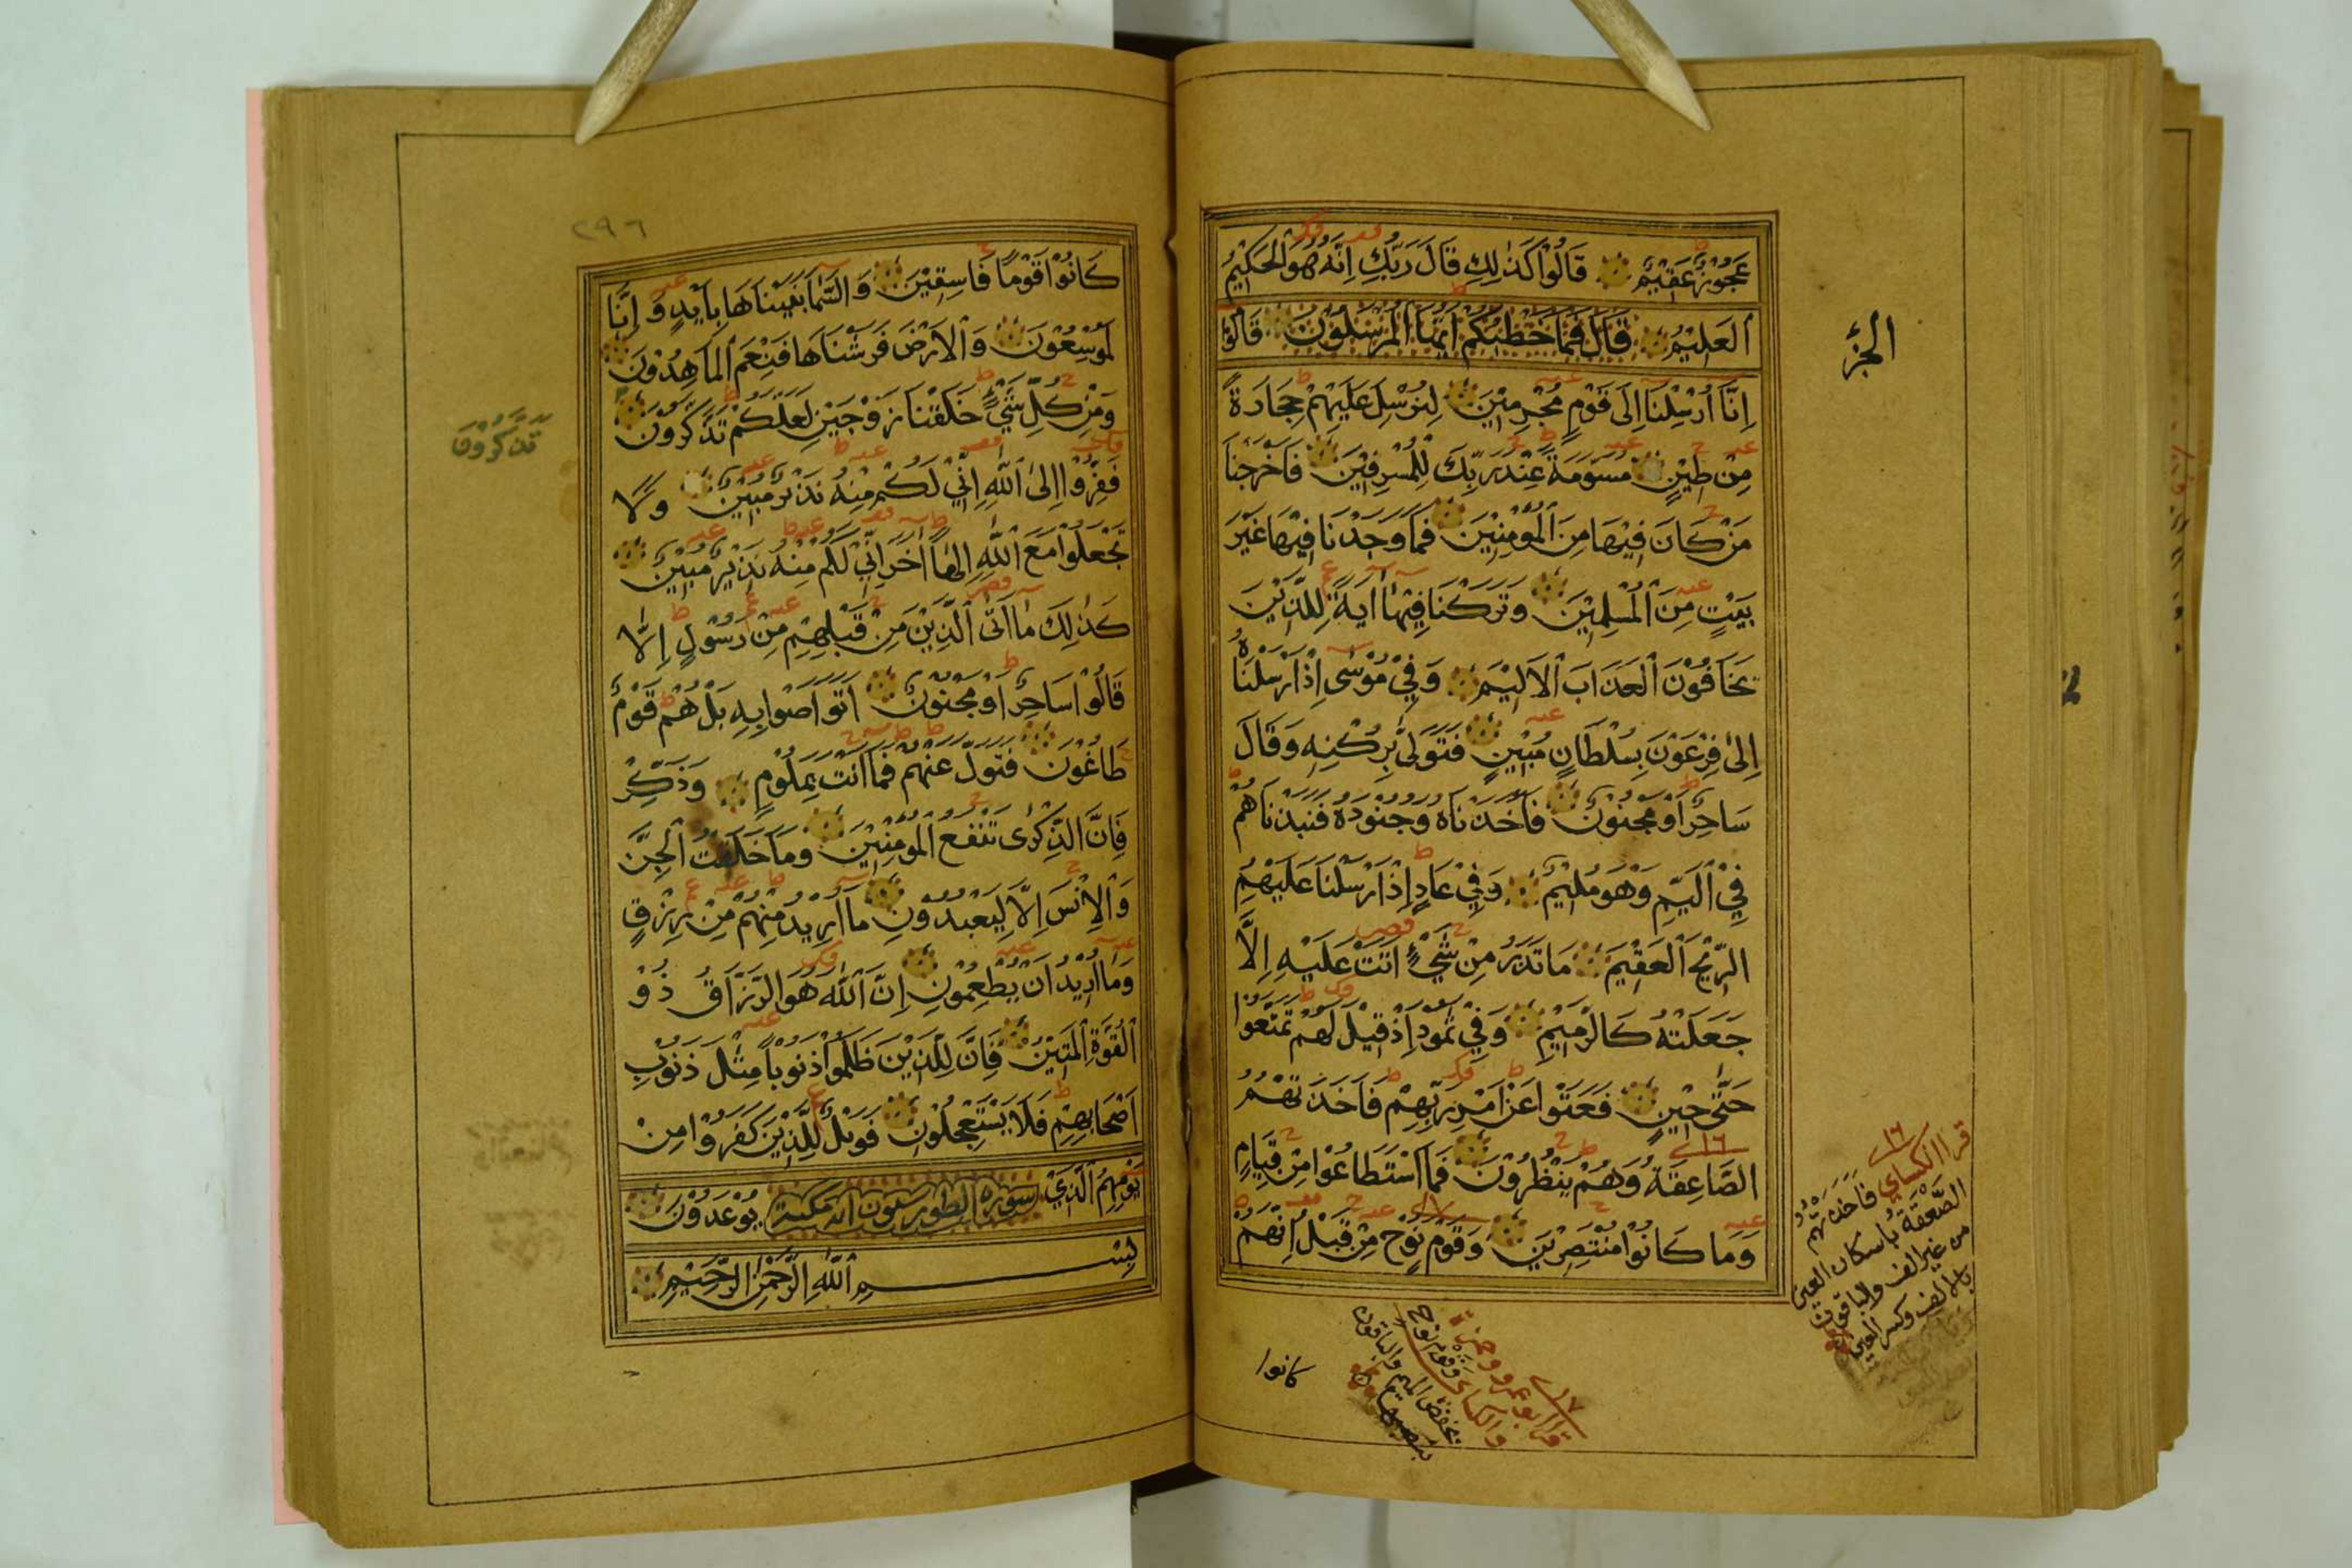 عَجُوْزٌ عَقِيْمٌ قَالُوْا كَذٰلِكِ قَالَ رَبُّكِ اِنَّهُ هُوَ الْحَكِيْمُ
الْعَلِيْمُ قَالَ فَمَا خَطْبُكُمْ اَيُّهَا الْمُرْسَلُوْنَ قَالُوْا
اِنَّا اُرْسِلْنَا اِلَى قَوْمٍ مُجْرِمِيْنَ لِنُرْسِلَ عَلَيْهِمْ حِجَارَةً
مِنْ طِيْنٍ مُسَوَّمَةً عِنْدَ رَبِّكَ لِلْمُسْرِفِيْنَ فَاَخْرَجْنَا
مَنْ كَانَ فِيْهَا مِنَ الْمُؤْمِنِيْنَ فَمَا وَجَدْنَا فِيْهَا غَيْرَ
بَيْتٍ مِنَ الْمُسْلِمِيْنَ وَتَرَكْنَا فِيْهَا اٰيَةً لِلَّذِيْنَ
يَخَافُوْنَ الْعَذَابَ الْاَلِيْمَ وَفِيْ مُوْسٰى اِذْ اَرْسَلْنَاهُ
اِلىٰ فِرْعَوْنَ بِسُلْطَانٍ مُبِيْنٍ فَتَوَلّٰى بِرُكْنِهِ وَقَالَ
سَاحِرٌ اَوْ مَجْنُوْنٌ فَاَخَذْنَاهُ وَجُنُوْدَهُ فَنَبَذْنَاهُمْ
فِيْ الْيَمِّ وَهُوَ مُلِيْمٌ وَفِيْ عَادٍ اِذْ اَرْسَلْنَا عَلَيْهِمُ
الرِّيْحَ الْعَقِيْمَ مَا تَذَرُ مِنْ شَيْءٍ اَتَتْ عَلَيْهِ اِلَّا
جَعَلَتْهُ كَالرَّمِيْمِ وَفِيْ ثَمُوْدَ اِذْ قِيْلَ لَهُمْ تَمَتَّعُوْا
حَتّٰى حِيْنٍ فَعَتَوْا عَنْ اَمْرِ رَبِّهِمْ فَاَخَذَتْهُمُ
الصَّاعِقَةُ وَهُمْ يَنْظُرُوْنَ فَمَا اسْتَطَاعُوْا مِنْ قِيَامٍ
وَمَا كَانُوْا مُنْتَصِرِيْنَ وَقَوْمَ نُوْحٍ مِنْ قَبْلُ اِنَّهُمْ
الجزء
١٦
قرا الكساي فَاَخَذَتْهُمُ
الصَّعْقَةُ باسكان العين
من غير الف والباقون
بالالف وكسر العين
١٧
قرا ابو عمرو وحمزة
والكساي وقوم نوح
بخفض الميم والباقون
بنصبها
كانوا
٢٩٦
كَانُوْا قَوْمًا فَاسِقِيْنَ وَالسَّمَآءَ بَنَيْنَاهَا بِاَيْيدٍ وَاِنَّا
لَمُوْسِعُوْنَ وَالْاَرْضَ فَرَشْنَاهَا فَنِعْمَ الْمَاهِدُوْنَ
وَمِنْ كُلِّ شَيْءٍ خَلَقْنَا زَوْجَيْنِ لَعَلَّكُمْ تَذَّكَّرُوْنَ
فَفِرُّوْا اِلىٰ اللّٰهِ اِنِّيْ لَكُمْ مِنْهُ نَذِيْرٌ مُبِيْنٌ وَلَا
تَجْعَلُوْا مَعَ اللّٰهِ اِلٰهًا اٰخَرَ اِنِّيْ لَكُمْ مِنْهُ نَذِيْرٌ مُبِيْنٌ
كَذٰلِكَ مَا اَتَى الَّذِيْنَ مِنْ قَبْلِهِمْ مِنْ رَسُوْلٍ اِلَّا
قَالُوْا سَاحِرٌ اَوْ مَجْنُوْنٌ اَتَوَاصَوْا بِهِ بَلْ هُمْ قَوْمٌ
طَاغُوْنَ فَتَوَلَّ عَنْهُمْ فَمَا اَنْتَ بِمَلُوْمٍ وَذَكِّرْ
فَاِنَّ الذِّكْرٰى تَنْفَعُ الْمُؤْمِنِيْنَ وَمَا خَلَقْتُ الْجِنَّ
وَالْاِنْسَ اِلَّا لِيَعْبُدُوْنِ مَا اُرِيْدُ مِنْهُمْ مِنْ رِزْقٍ
وَمَا اُرِيْدُ اَنْ يُطْعِمُوْنِ اِنَّ اللّٰهَ هُوَ الرَّزَّاقُ ذُوْ
الْقُوَّةِ الْمَتِيْنُ فَاِنَّ لِلَّذِيْنَ ظَلَمُوْا ذَنُوْبًا مِثْلَ ذَنُوْبِ
اَصْحَابِهِمْ فَلَا يَسْتَعْجِلُوْنِ فَوَيْلٌ لِلَّذِيْنَ كَفَرُوْا مِنْ
يَوْمِهِمُ الَّذِيْ يُوْعَدُوْنَ
سورة الطور سبعون اية مكية
بِسْمِ اللّٰهِ الرَّحْمٰنِ الرَّحِيْمِ
تَذَّكَّرُوْنَ